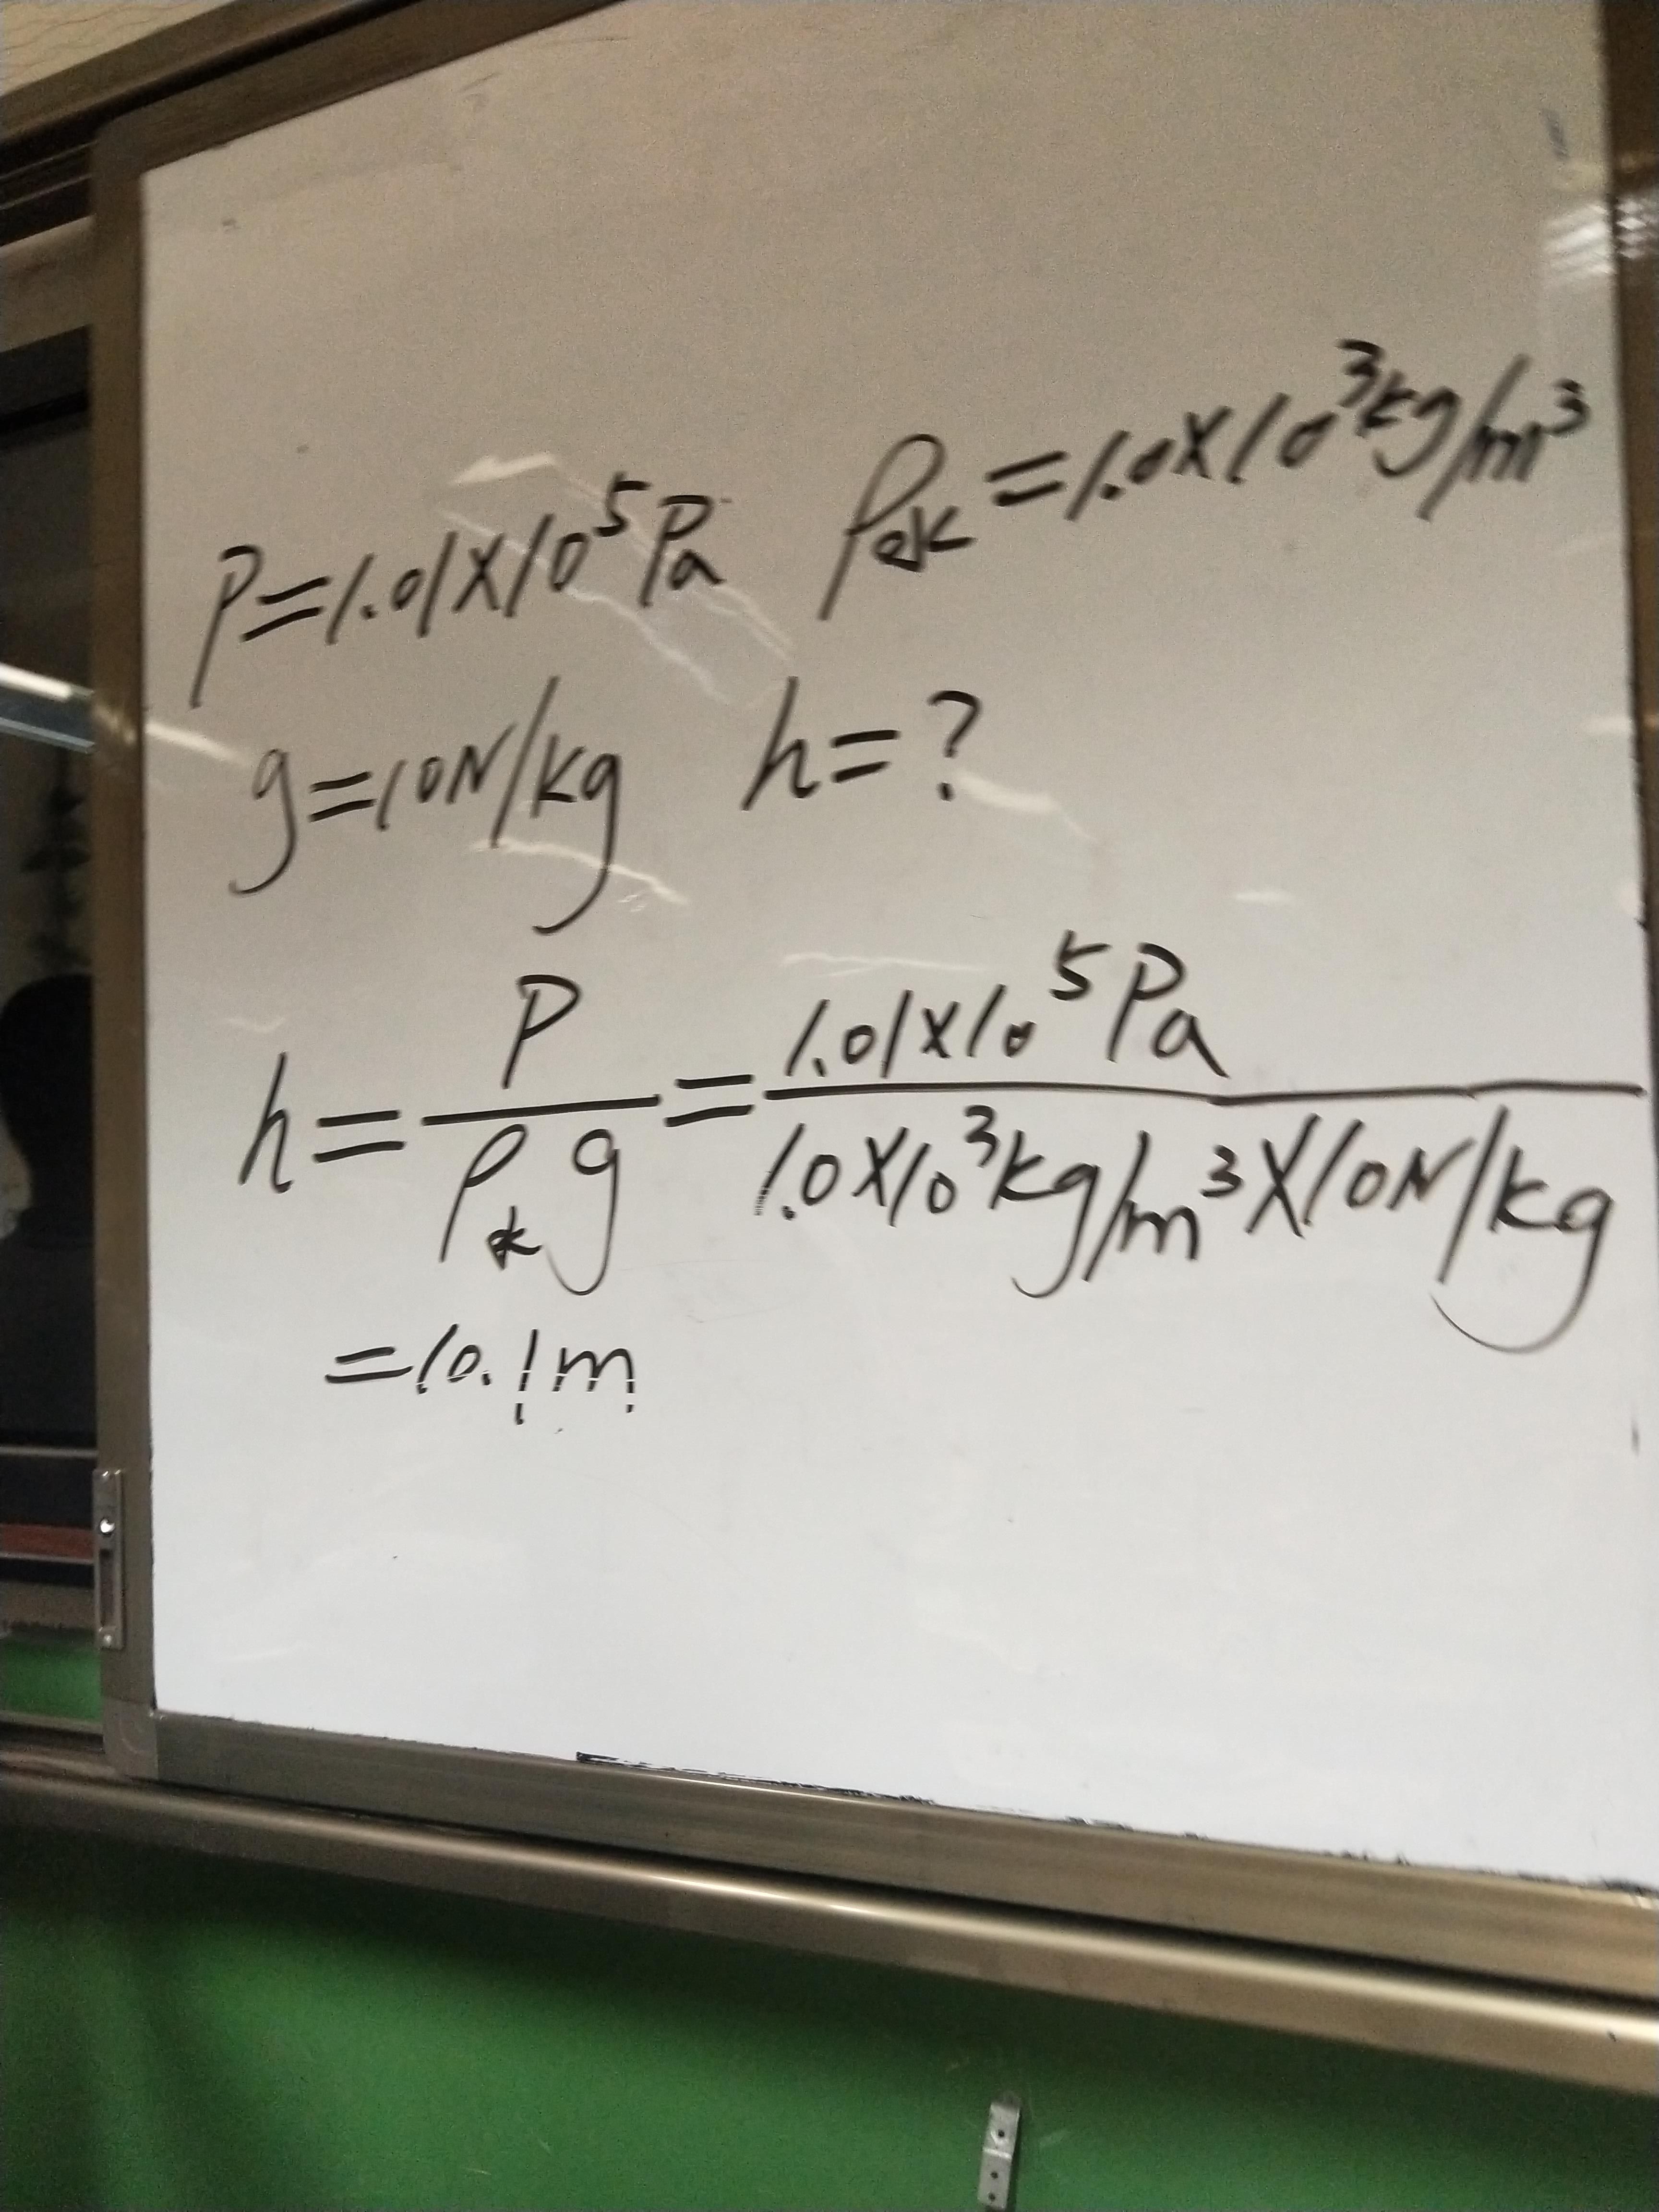 P=1.01×10⁵Pa ρ水=1.0×10³kg/m³
g=10N/kg h=?
h=P/ρ水g=1.01×10⁵Pa/1.0×10³kg/m³×10N/kg
=10.1m